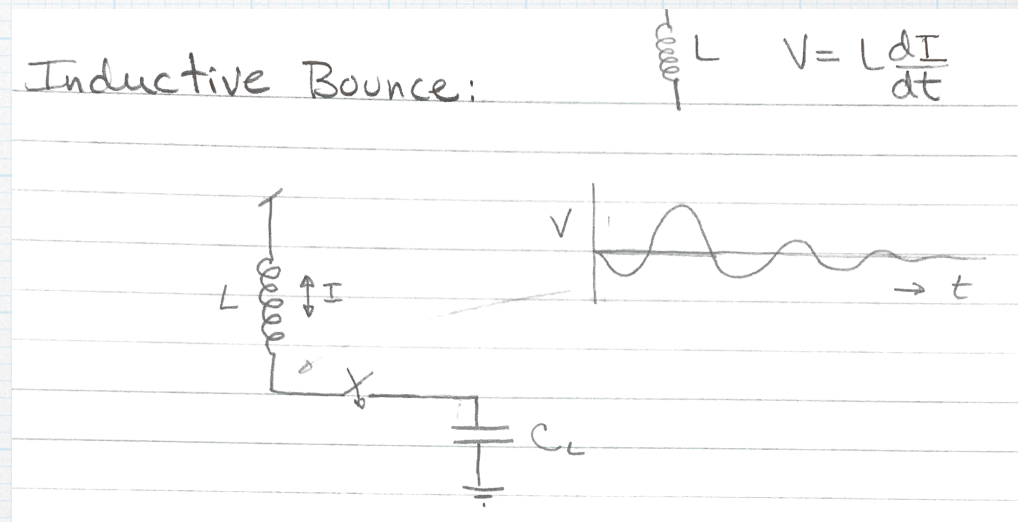 Inductive Bounce:
L V = L dI/dt
V
t
L I
C_L